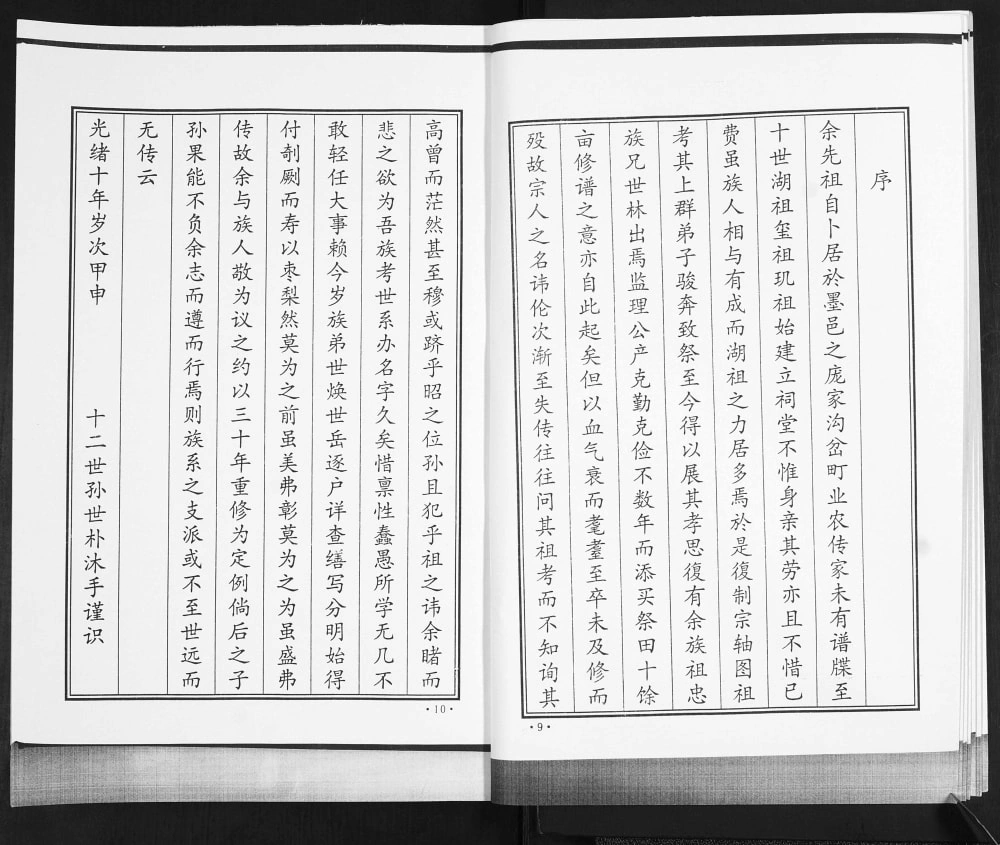 序
余先祖自卜居於墨邑之庞家沟岔町业农传家未有谱牒至
十世湖祖玺祖玑祖始建立祠堂不惟身亲其劳亦且不惜已
费虽族人相与有成而湖祖之力居多焉於是復制宗轴图祖
考其上群弟子骏奔致祭至今得以展其孝思復有余族祖忠
族兄世林出焉监理公产克勤克俭不数年而添买祭田十馀
亩修谱之意亦自此起矣但以血气衰而耄耋至卒未及修而
殁故宗人之名讳伦次渐至失传往往问其祖考而不知询其
·9·
高曾而茫然甚至穆或跻乎昭之位孙且犯乎祖之讳余睹而
悲之欲为吾族考世系办名字久矣惜禀性蠢愚所学无几不
敢轻任大事赖今岁族弟世焕世岳逐户详查缮写分明始得
付剞劂而寿以枣梨然莫为之前虽美弗彰莫为之为虽盛弗
传故余与族人敬为议之约以三十年重修为定例倘后之子
孙果能不负余志而遵而行焉则族系之支派或不至世远而
无传云
光绪十年岁次甲申 十二世孙世朴沐手谨识
·10·